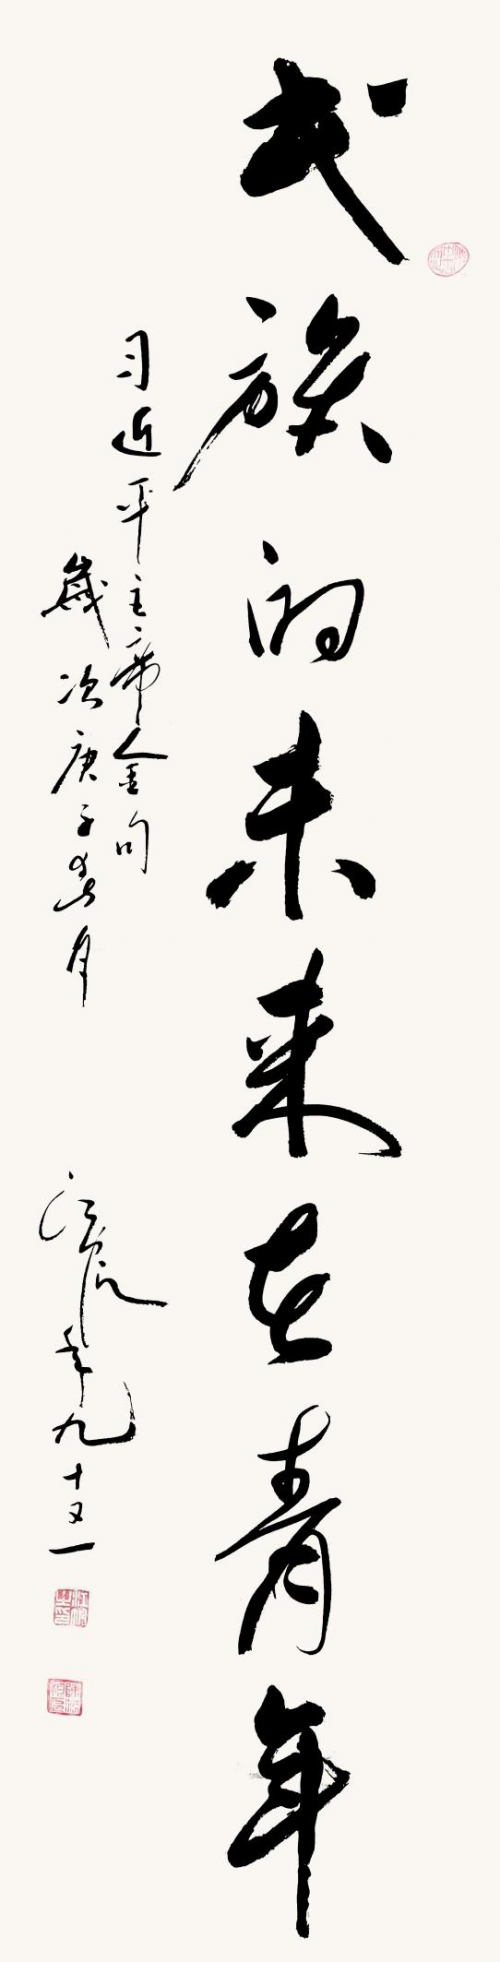 民族的未来在青年
习近平主席金句
歲次庚子春月
年九十又一